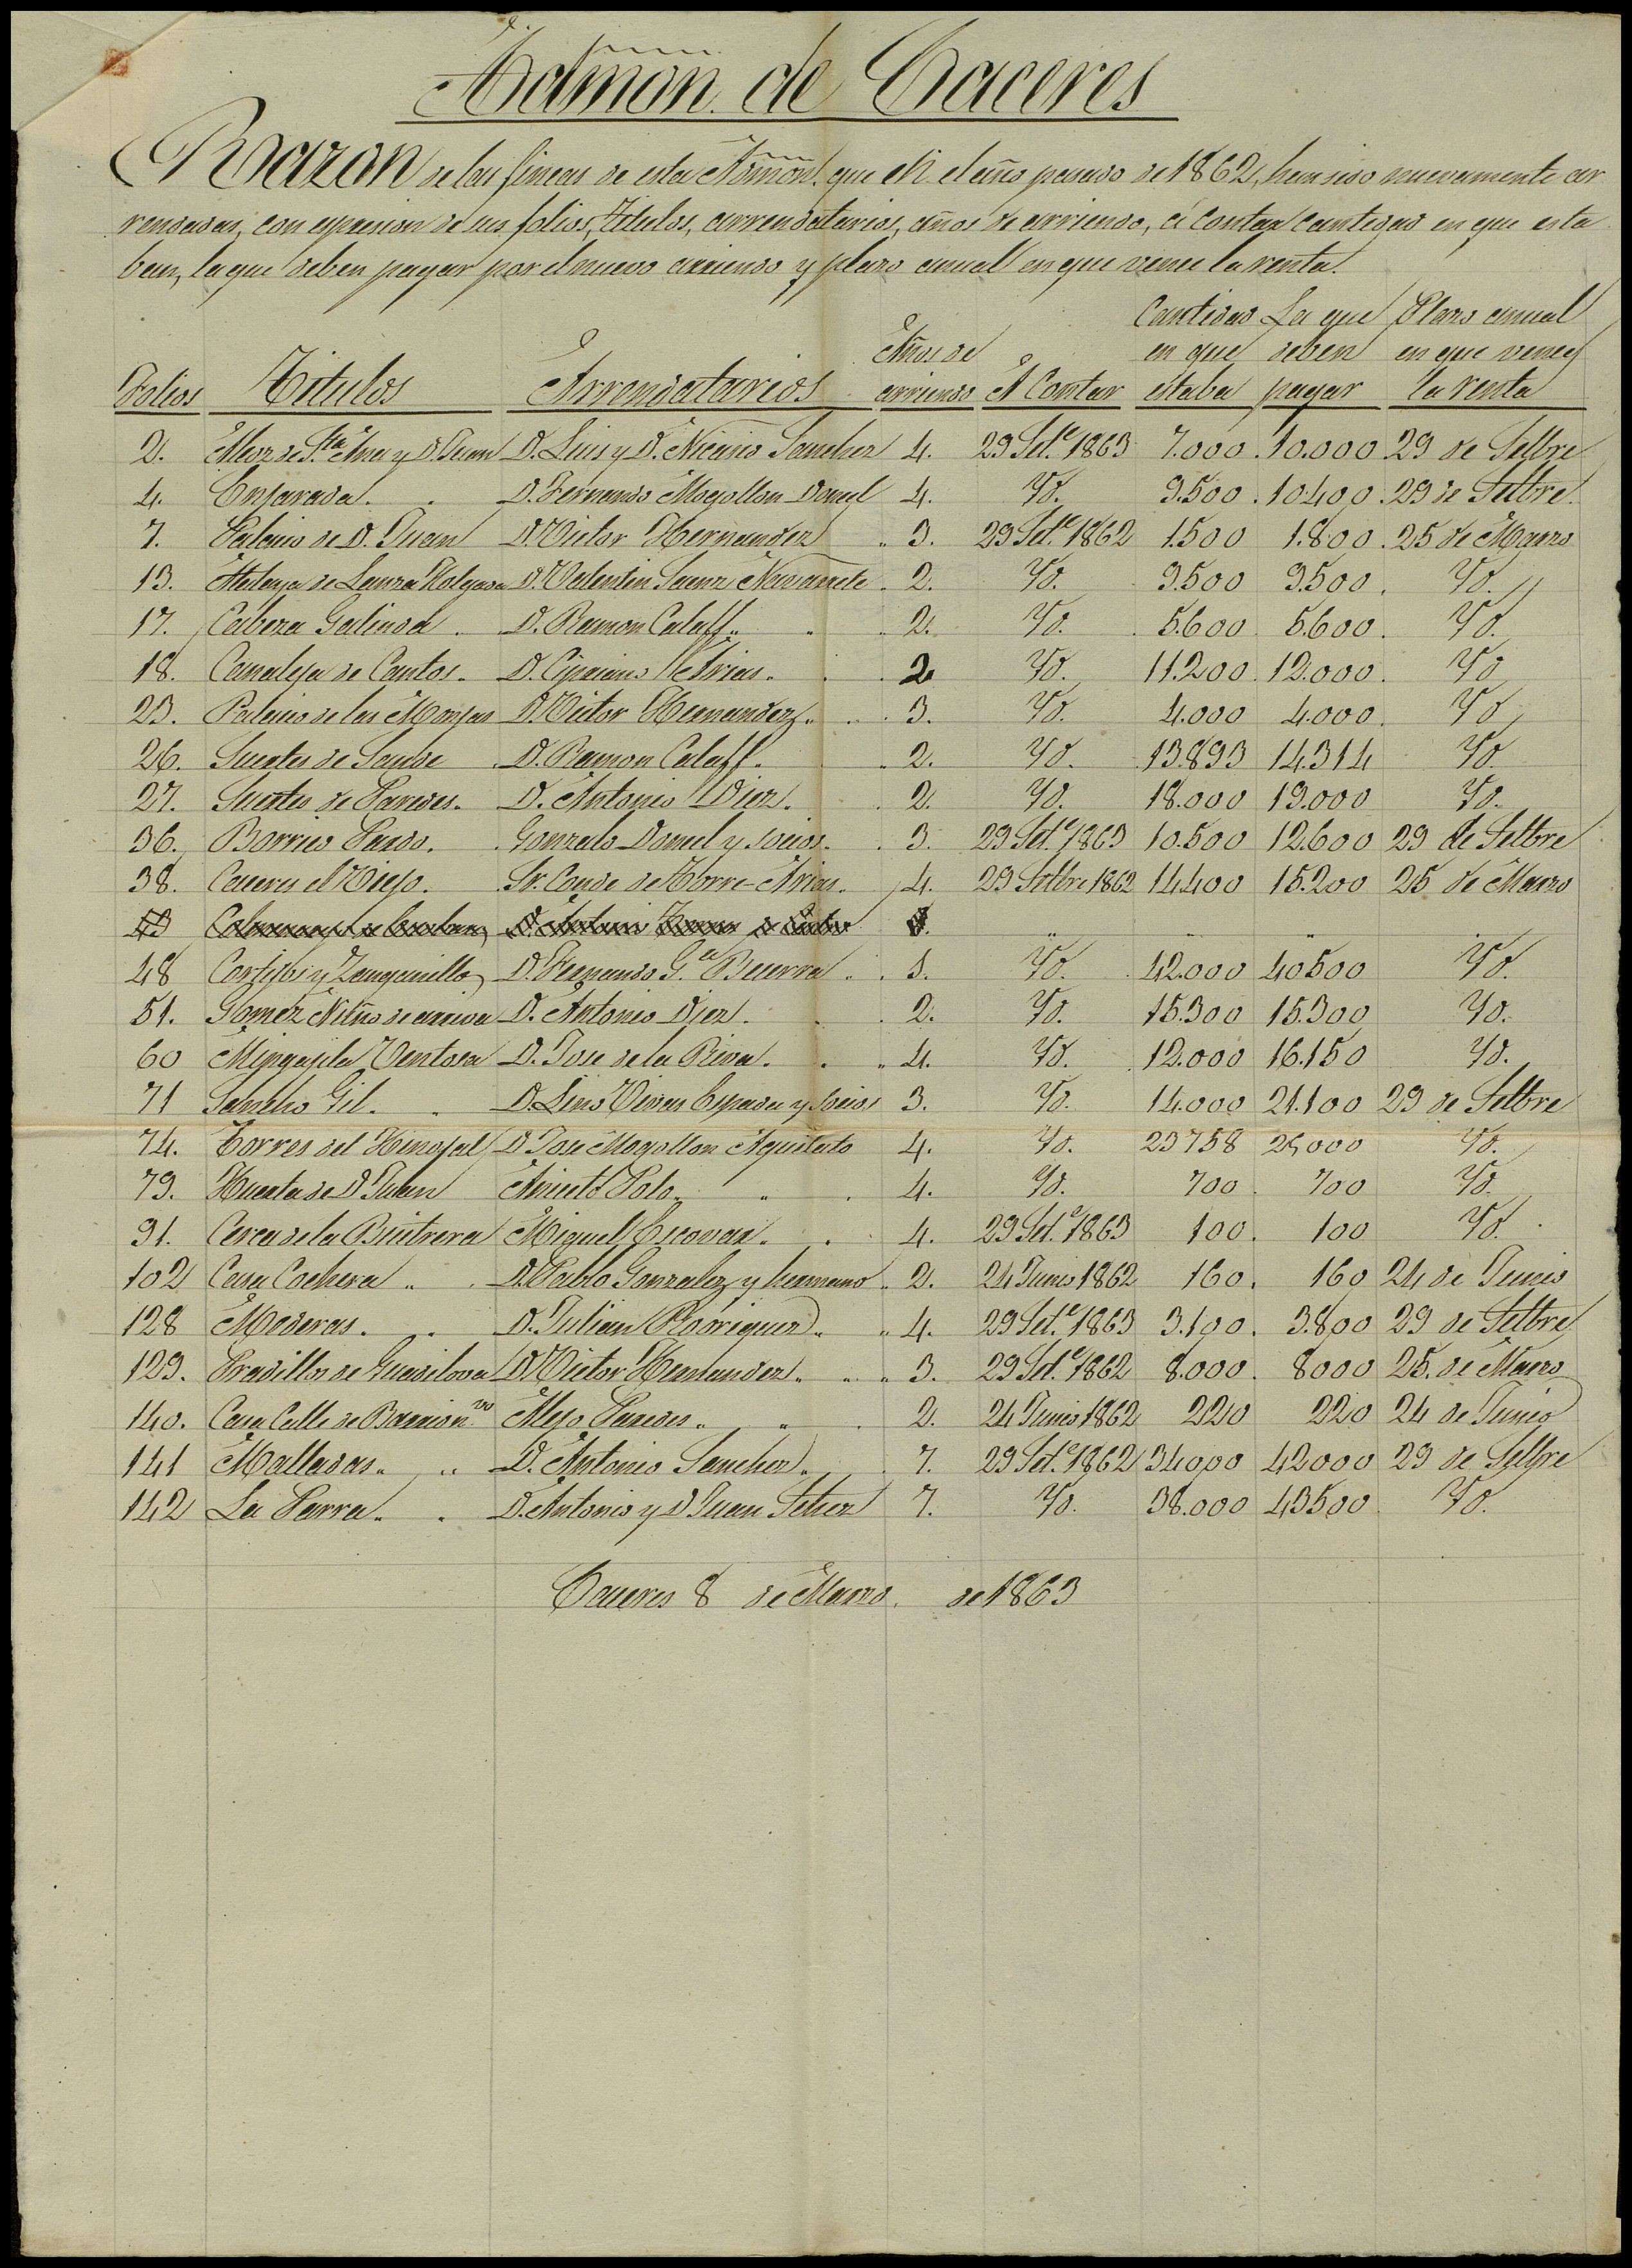 Admōn. de Caceres
Razon de las fincas de esta Admōn. que en el año pasado de 1862, han sido nuevamente ar
rendadas, con espresion de sus folios, titulos, arrendatarios, años de arriendo, á contar cantidad en que esta
ban, la que deben pagar por el nuevo arriendo y plazo anual en que vence la renta.
Folios Titulos Arrendatarios Años de arriendo A Contar Cantidad en que estaba La que deben pagar Plazo anual en que vence la renta
2. de Sta. Ana y D. Juan D. Luis y D. Nicasio Sanchez 4. 29 Sete. 1863 7.000. 10.000 29 de Setbre
4. Enjarada. D. Fernando Mogollon Donel 4. Yd. 9.500. 10400. 29 de Setbre.
7. Palacio de D. Juan D. Victor Hernandez 3. 29 Sete. 1862 1.500 1.800. 25 de Marzo
13. Atalaya de D. Valentin Saenz Navarrete. 2. Yd. 9.500 9.500. Yd.
17. Cabeza Galinda. D. Ramon Calaff. 2. Yd. 5.600 5.600. Yd.
18. Canaleja de Cantos. D. Cipriano Arias. 2 Yd. 11.200. 12.000. Yd
23. Palacio de las Monjas D. Victor Hernandez. 3. Yd. 4.000 4.000. Yd
26. Suertes de Sande D. Ramon Calaff. 2. Yd. 13.893 14.314 Yd.
27. Suertes de Paredes. D. Antonio Diez. 2. Yd. 18.000 19.000 Yd.
36. Borrico Pardo. Gonzalo Donel y socios. 3. 29 Sete. 1863 10.500 12.600 29 de Setbre
38. Caceres el Viejo. Sr. Conde de Torre-Arias. 4. 29 Setbre 1862 14400 15.200 25 de Marzo
48 Cortijo y Zanganilla D. Fernando Ga. Becerra 1. Yd. 42.000 40500 Yd.
51. Gomez Nuño de arriva D. Antonio Diez. 2. Yd. 15.300 15.300 Yd.
60 Mingajila Ventosa D. Jose de la Riva. 4. Yd. 12.000 16.150 Yd.
71 Sancho Gil. D. Lino Vivas Espada y Socios 3. Yd. 14.000 21.100 29 de Setbre
74. Torres del Hinojal D. Jose Mogollon Aguilato 4. Yd. 23758 25000 Yd.
79. Huerta de D. Juan Aniceto Polo. 4. Yd. 700. 700 Yd.
91. Cerca de la Buitrera Miguel Escovar. 4. 29 Sete. 1863 100. 100 Yd.
102 Casa Cochera D. Pablo Gonzalez y hermano. 2. 24 Junio 1862 160. 160 24 de Junio
128 Moderas. D. Julian Rodriguez. 4. 29 Sete. 1863 3.100. 3.800 29 de Setbre
129. Pradillos de Guadiloba D. Victor Hernandez. 3. 29 Sete. 1862 8.000. 8000 25. de Marzo
140. Casa Calle de Alejo Paredes. 2. 24 Junio 1862 220 220 24 de Junio
141 Malladas. D. Antonio Sanchez. 7. 29 Sete. 1862 34000 42000 29 de Setbre
142 La Parra. D. Antonio y D Juan 7. Yd. 38.000 43500 Yd.
Caceres 8 de Marzo. de 1863